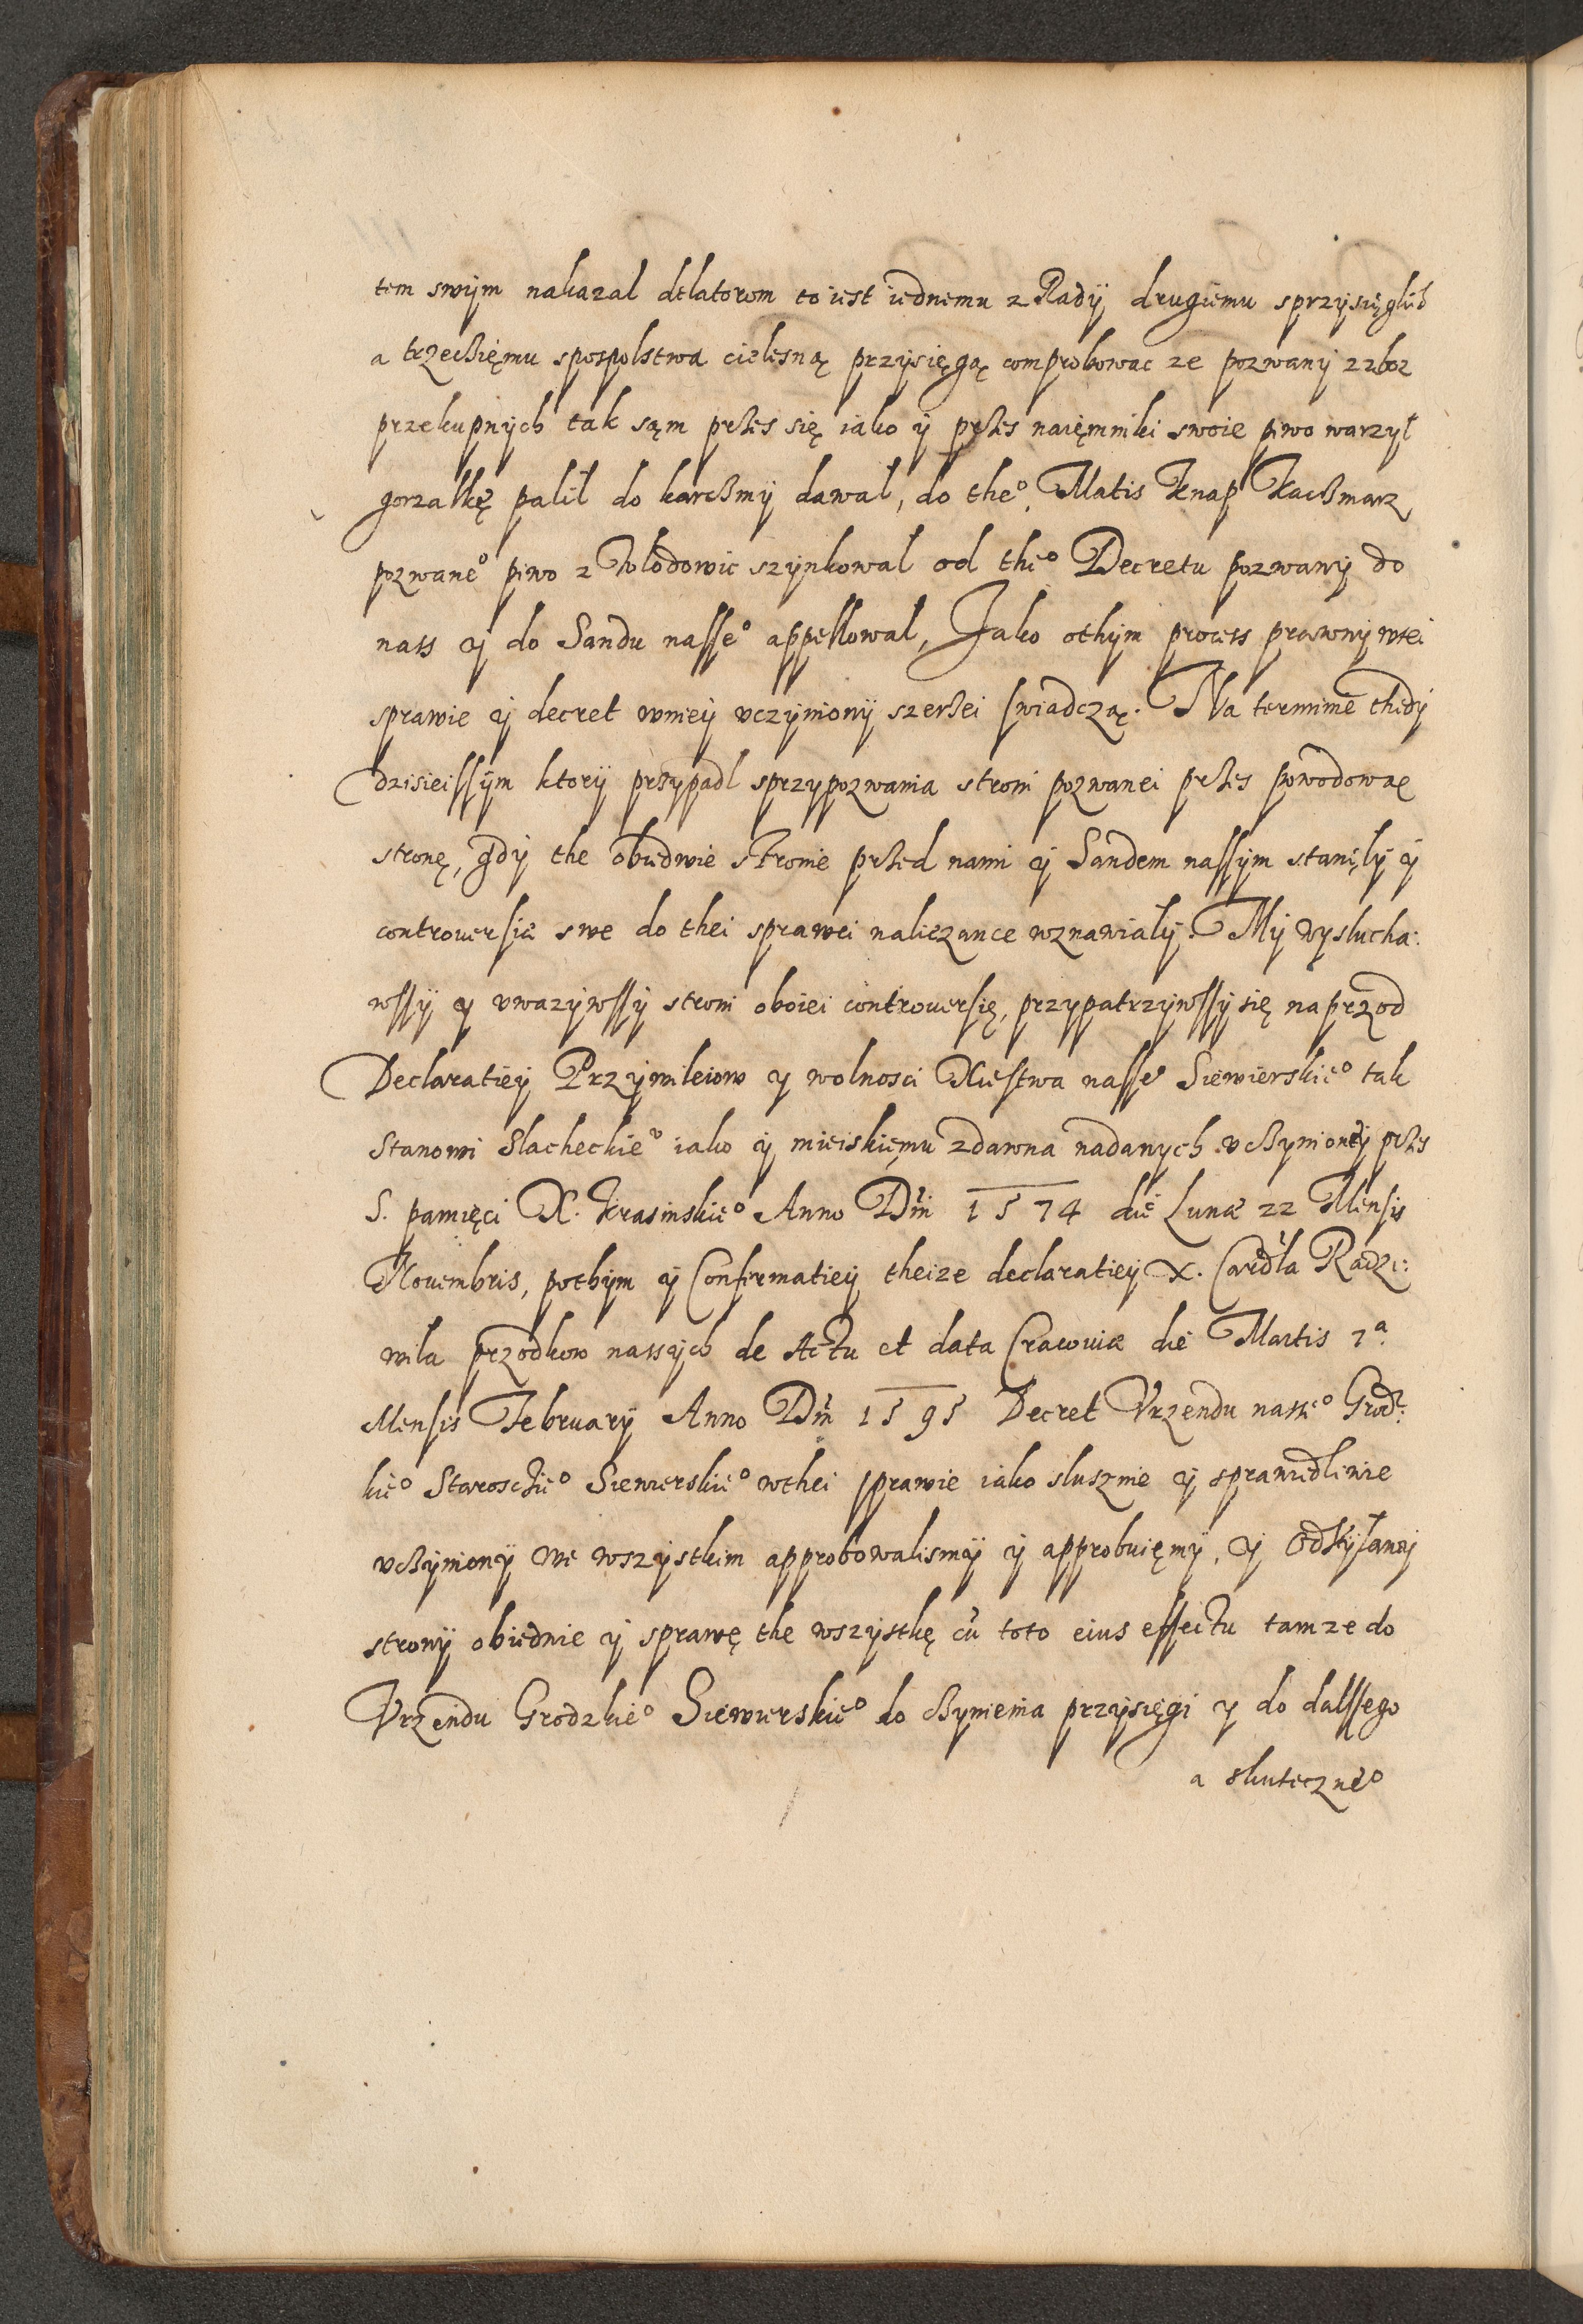 tem swÿm nakazal delatorom to iest iednemu z Radÿ drugiemu sprzÿsięglich
a trzecßięmu spospolstwa cielesną przÿsięgą comprobowac ze pozwanÿ zzboz
przekupnÿch tak sąm przes się iako ÿ przes naięmniki swoie piwo warzÿł
gorzalkę palił do karcßmÿ dawał, do the° Matis Knap Kacßmarz
pozwane° piwo z szÿnkowal od the° Decretu pozwanÿ do
nass ÿ do Sandu nasse° appellowal, Jako othÿm process prawnÿ wtei
sprawie ÿ decret wnieÿ vczÿnionÿ szerßei swiadczą. Na terminie thedÿ
dzisieissÿm ktorÿ przÿpadl sprzÿpozwania stroni pozwanei przes powodową
stronę, gdÿ the obiedwie stronie przed nami ÿ Sandem nassÿm stanęlÿ ÿ
controuersie swe do thei sprawei nalieżance wznawialÿ. Mÿ wÿslucha:
wssÿ ÿ vwazÿwssÿ stroni oboiei controuersię, przÿpatrzÿwssÿ się naprzod
Declaratieÿ Przÿwileiow ÿ wolnosci Xiestwa nasse° Siewierskie° tak
Stanowi Slacheckie° iako ÿ mieiskięmu zdawna nadanÿch vcßÿnioneÿ przes
S. pamięci X. Krasinskie° Anno Dni 1574 die Lunæ 22 Mensis
Nouembris, pothÿm ÿ Confirmatieÿ theize declaratieÿ X. Cardla Radzi:
wila przodkow nassÿch de Actu et data Cracouiæ die Martis 7ª
Mensis Februarÿ Anno Dni 1595 Decret Vrzendu nasse° Grodz:
kie° Staroschie° Siewierskie° wthei sprawie iako slusznie ÿ sprawiedliwie
vcßÿnionÿ we wszÿstkim approbowalismÿ ÿ approbuięmÿ, ÿ Odsÿlamÿ
stronÿ obiedwie ÿ sprawę the wszÿstkę cũ toto eius effectu tamze do
Vrzendu Grodzkie° Siewierskie° do cßÿnienia przÿsięgi ÿ do dalssego
a skuteczne°